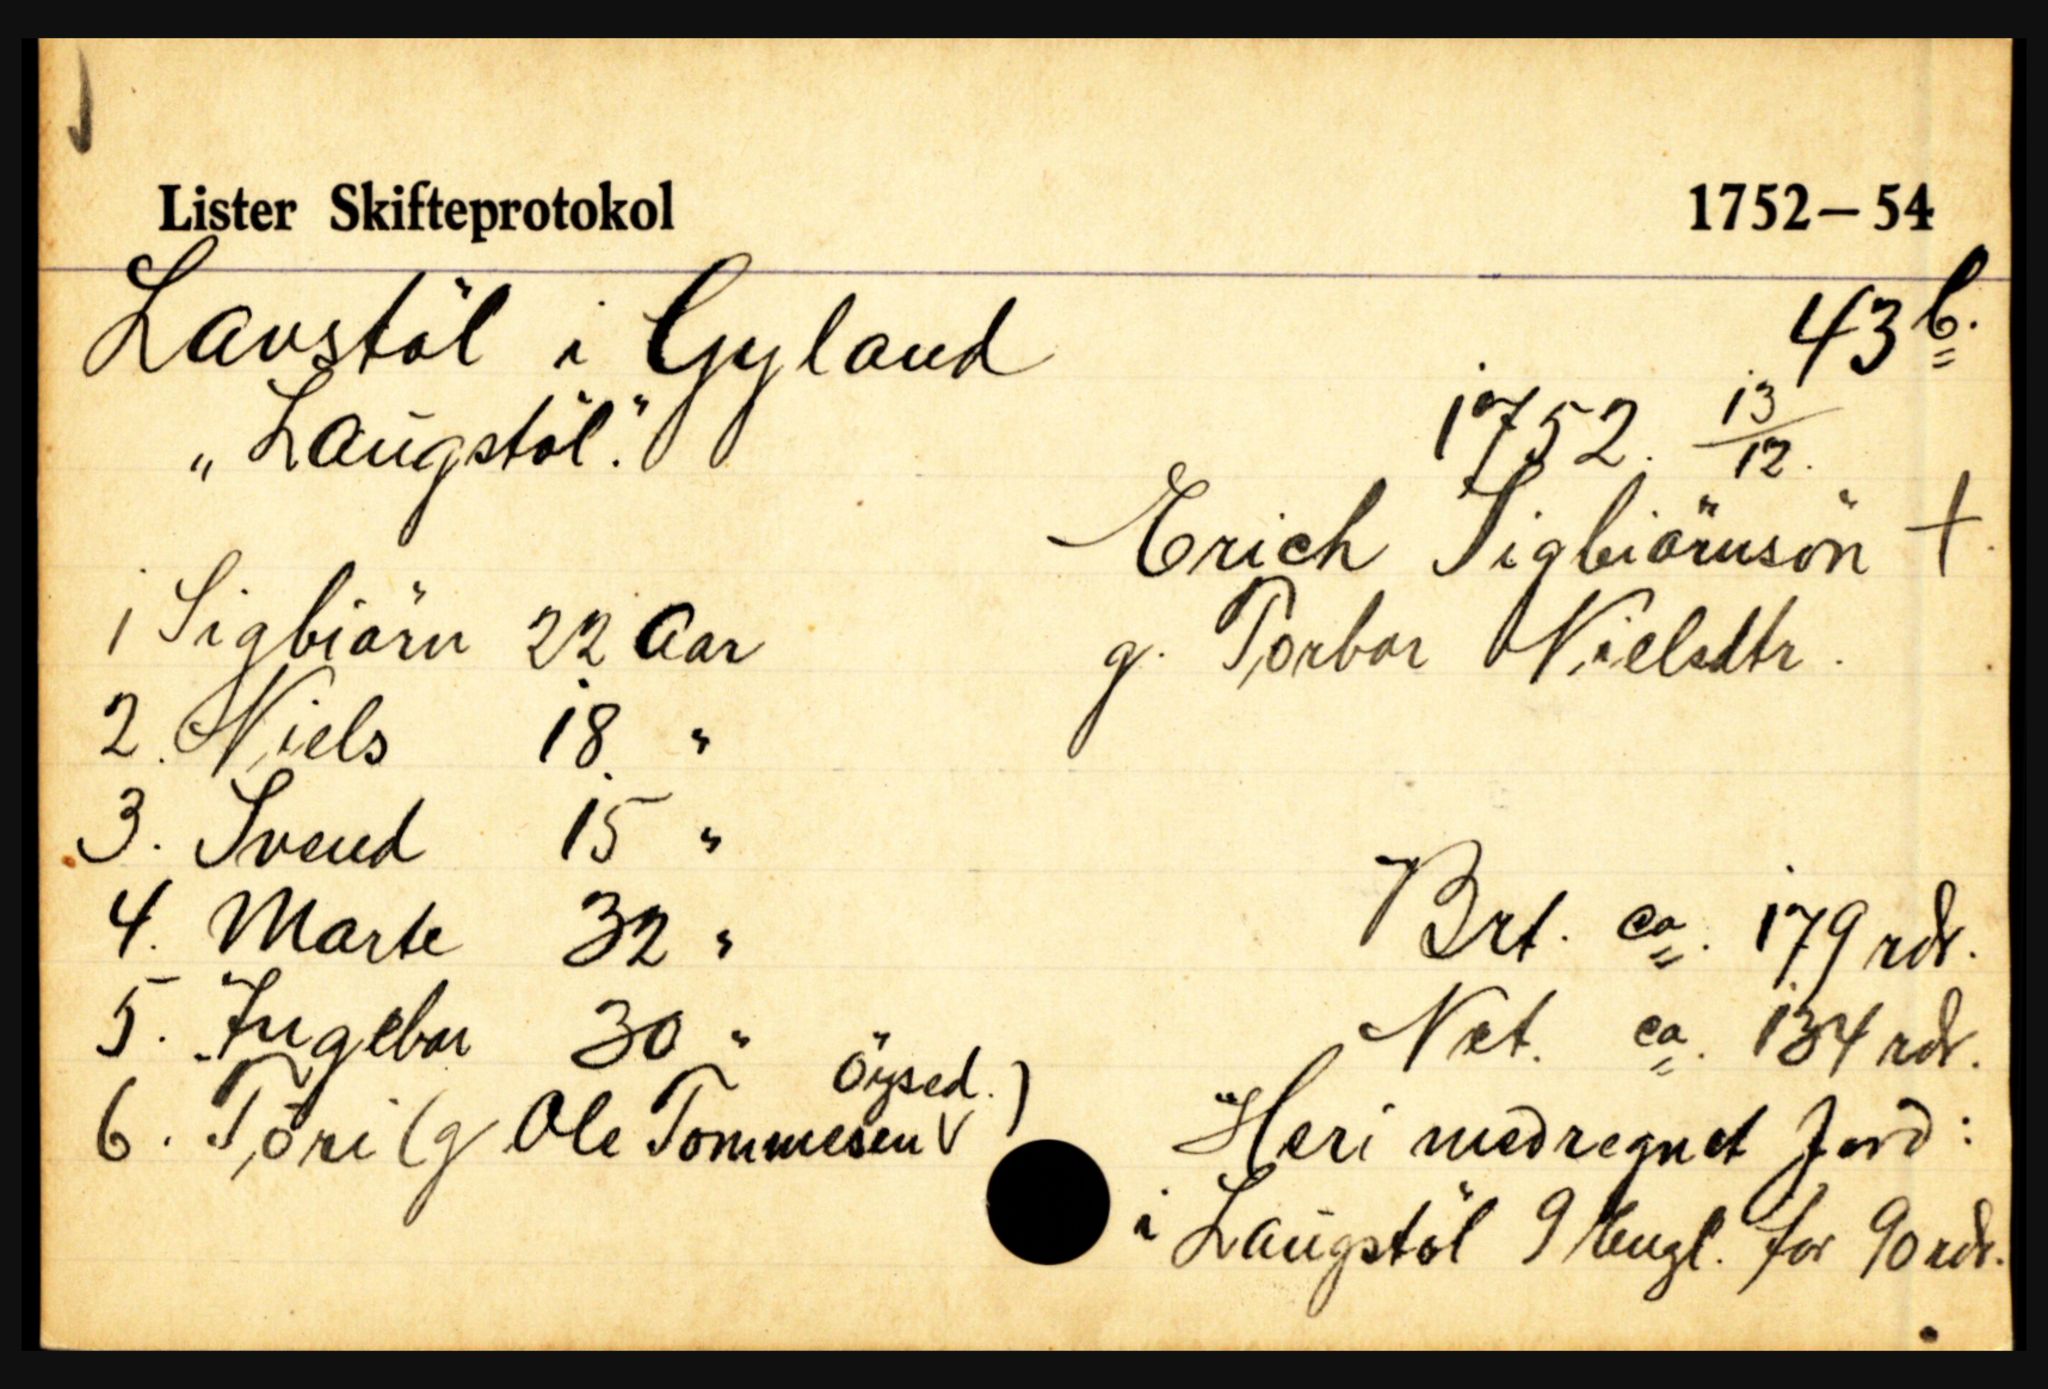 Lister Skifteprotokol 1752–54
Lavstöl i Gyland 43 b.
„Laugstöl."
1752. 13/12.
Erich Sigbiörnsön +.
g. Torbor Nielsdtr.
1 Sigbiörn 22 Aar
2. Niels 18 "
3. Svend 15 "
4. Marte 32 "
5. Ingebor 30 "
6. Töri (g Ole Tommesen Öysed.)
Brt. ca. 179 rdr.
Net. ca. 134 rdr.
Heri medregnet Jord:
i Laugstöl 9 Engl. for 90 rdr.